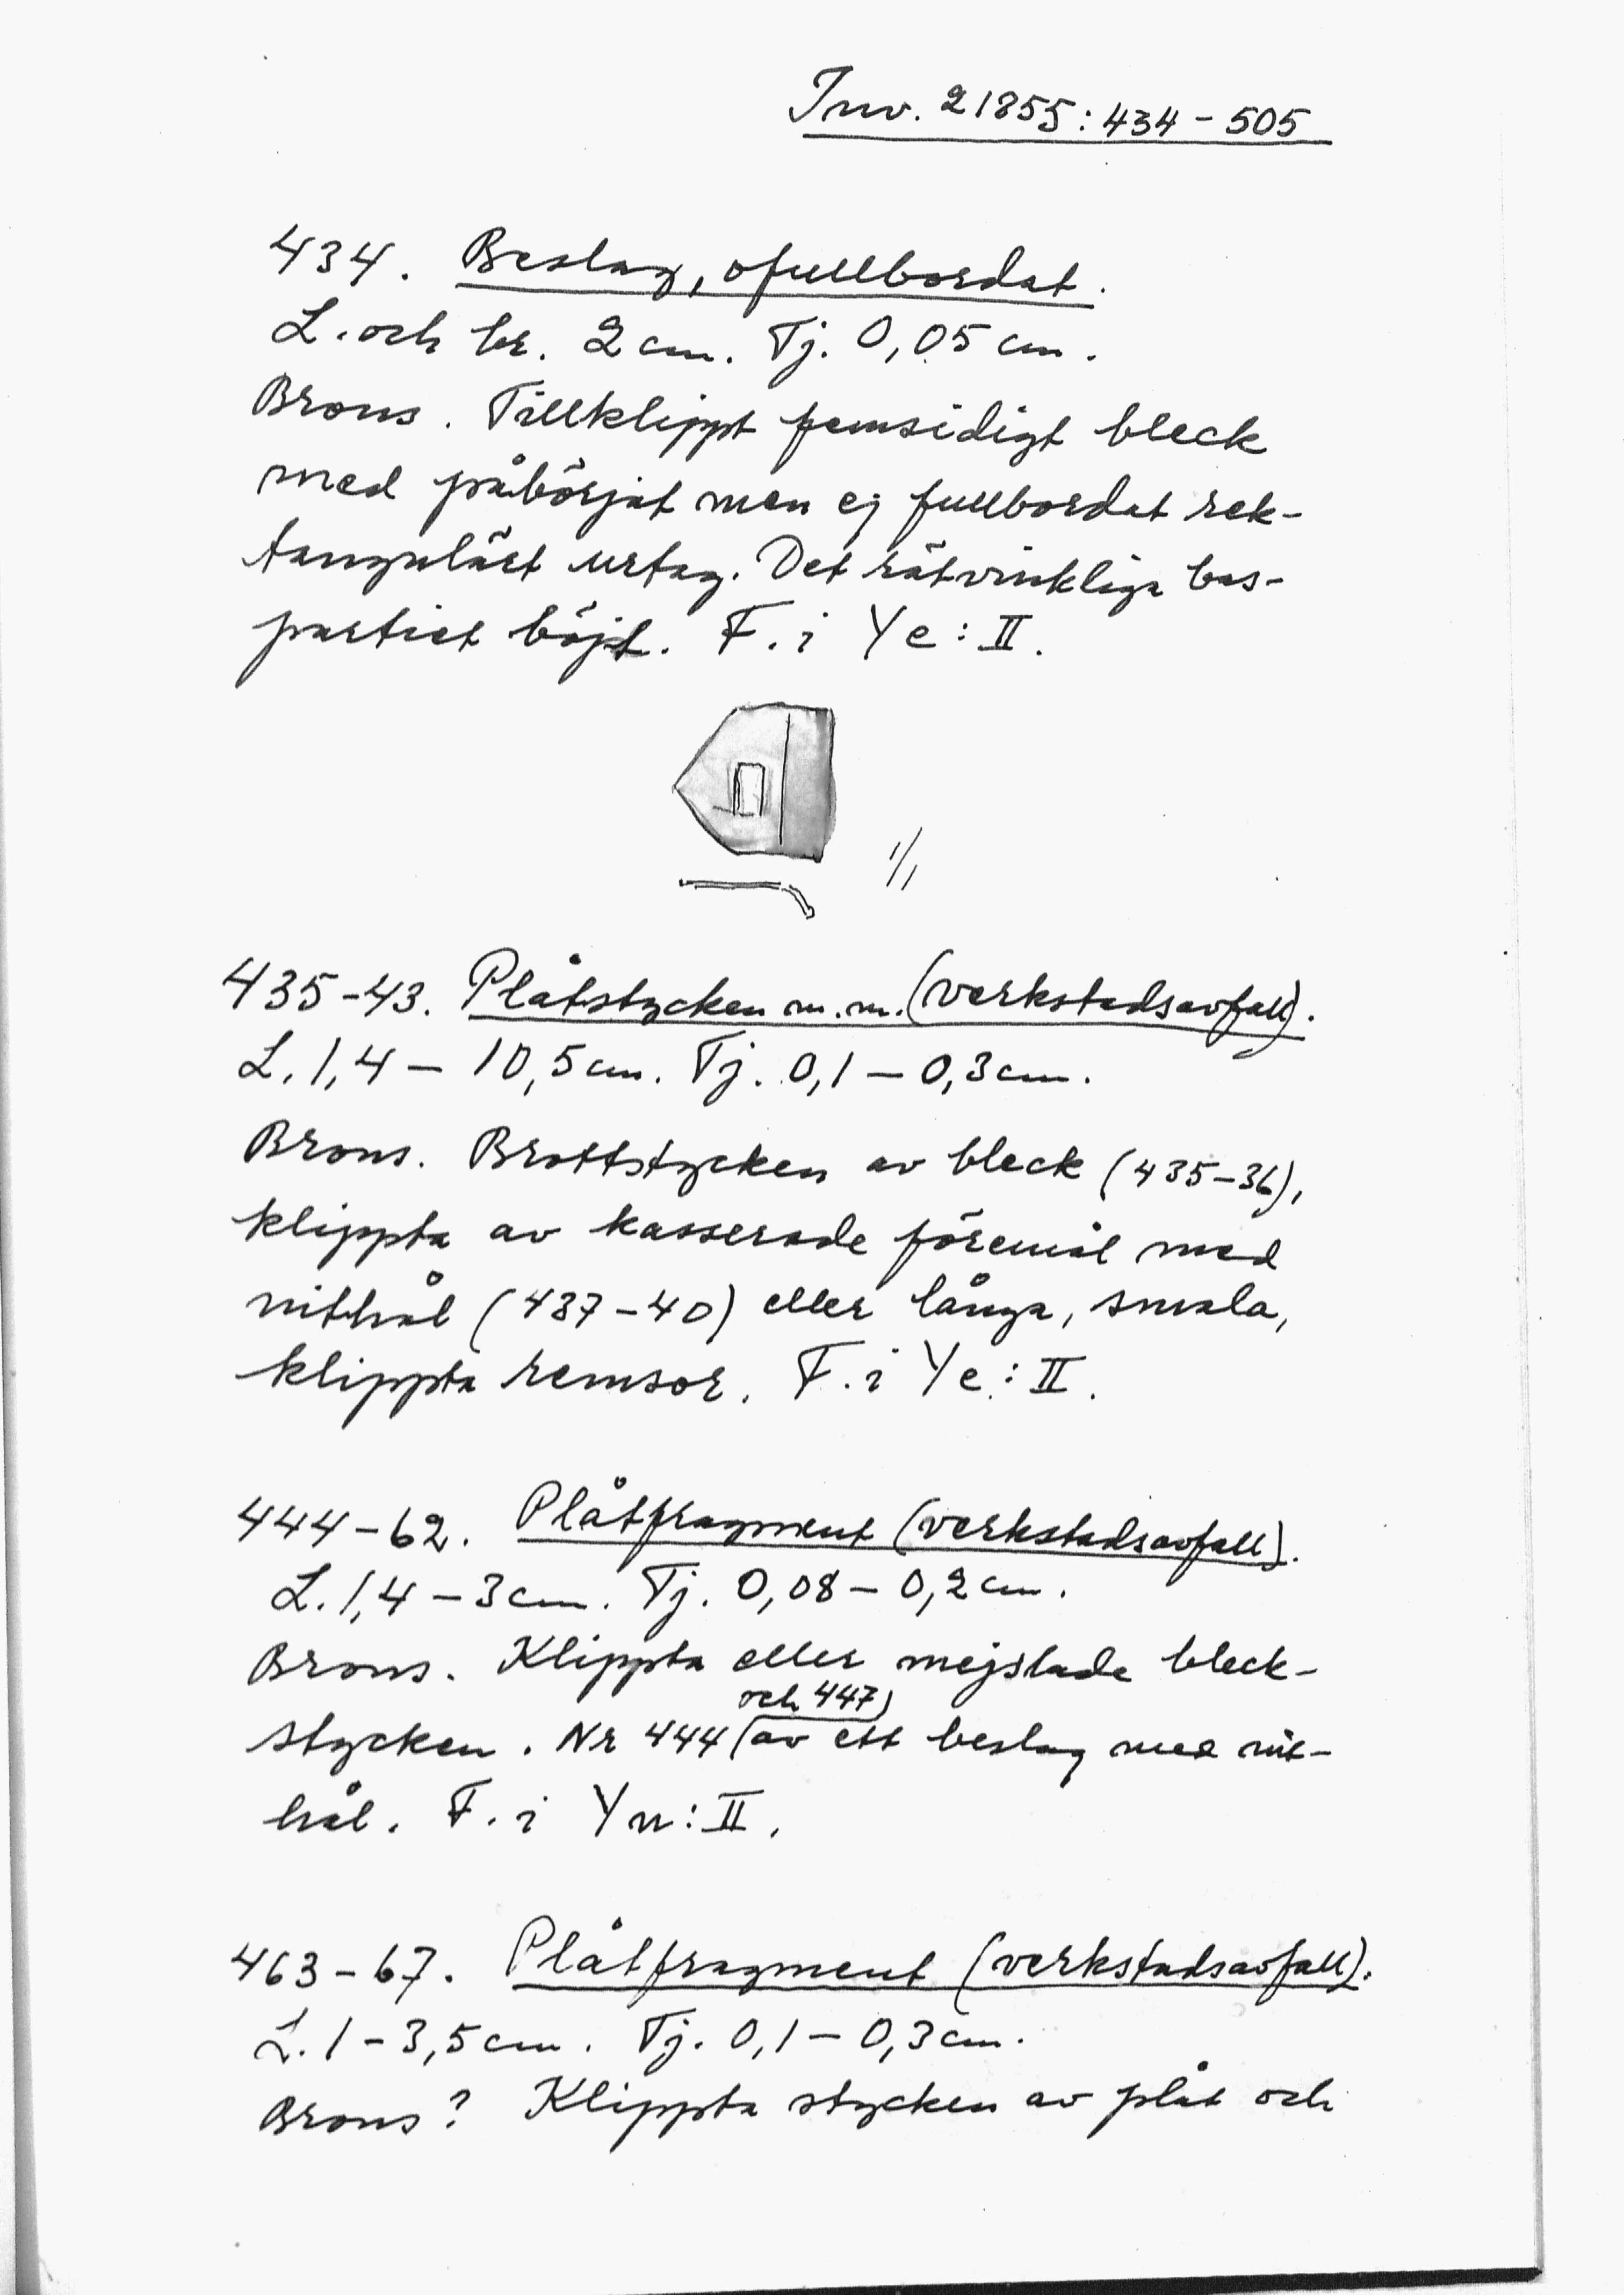 Inv. 21855:434-505
434. Beslag, ofullbordat.
L. och br. 2 cm. Tj. 0,05 cm.
Brons. Tillklippt femsidigt bleck
med påbörjat men ej fullbordat rek-
tangulärt urtag. Det rätvinkliga bas-
partiet böjt. F. i Ye:II.
1/1
435-43. Plåtstycken m.m. (verkstadsavfall).
L. 1,4 - 10,5 cm. Tj. 0,1 - 0,3 cm.
Brons. Brottstycken av bleck (435-36),
klippta av kasserade föremål med
nithål (437-40) eller långa, smala,
klippta remsor. F. i Ye:II.
444-62. Plåtfragment (verkstadsavfall).
L. 1,4 - 3 cm. Tj. 0,08 - 0,2 cm.
Brons. Klippta eller mejslade bleck-
och 447)
stycken. Nr 444 (av ett beslag med nit-
hål. F. i Yn:II.
463-67. Plåtfragment (verkstadsavfall).
L. 1 - 3,5 cm. Tj. 0,1 - 0,3 cm.
Brons? Klippta stycken av plåt och